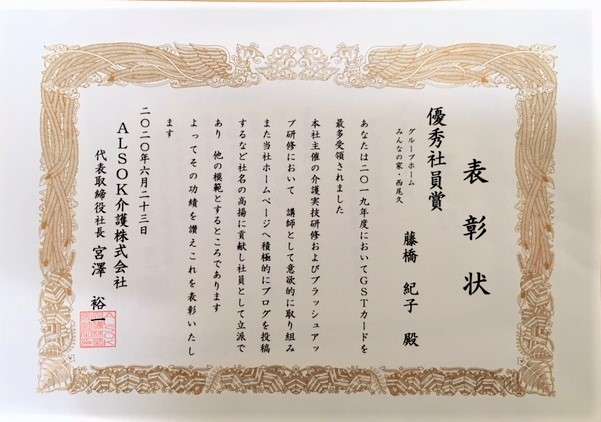 表彰状
優秀社員賞
グループホーム
みんなの家・西尾久
藤橋 紀子 殿
あなたは二〇一九年度においてGSTカードを
最多受領されました
本社主催の介護実技研修およびブラッシュアッ
プ研修において 講師として意欲的に取り組み
また当社ホームページへ積極的にブログを投稿
するなど社名の高揚に貢献し社員として立派で
あり 他の模範とするところであります
よってその功績を讃えこれを表彰いたし
ます
二〇二〇年六月二十三日
ALSOK介護株式会社
代表取締役社長 宮澤 裕一